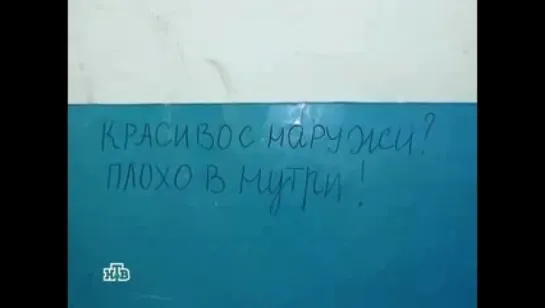 КРАСИВО С НАРУЖИ?
ПЛОХО В НУТРИ!
НТВ